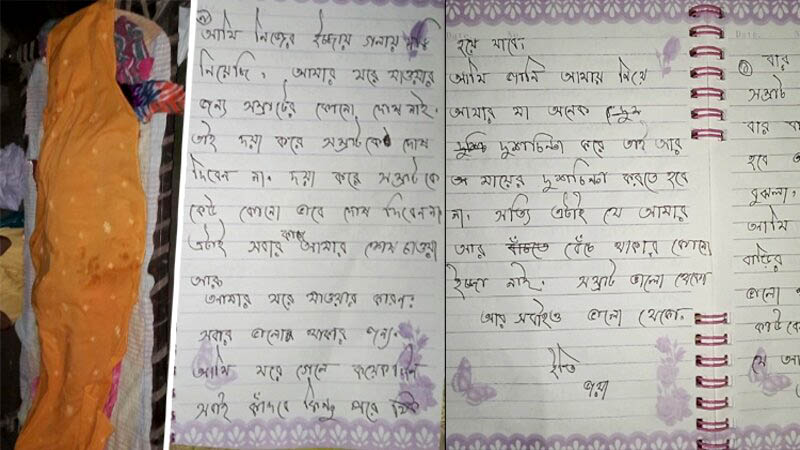 আমি নিজের ইচ্ছায় গলায়
নিয়েছি। আমার মরে যাওয়ার
জন্য সম্রাটের কোনো দোষ নাই।
তাই দয়া করে সম্রাট কে দোষ
দিবেন না। দয়া করে সম্রাট কে
কেউ কোনো ভাবে দোষ দিবেন না
এটাই সবার কাছে আমার শেষ চাওয়া
আর
আমার মরে যাওয়ার কারন:
সবার ভালো থাকার জন্যে।
আমি মরে গেলে কয়েকদিন
সবাই কাঁদবে কিন্তু পরে ঠিক
হয়ে যাবে।
আমি জানি আমায় নিয়ে
আমার মা অনেক
দুশ্চিন্তা করে তাই আর
মায়ের দুশ্চিন্তা করতে হবে
না। সত্যি এটাই যে আমার
আর বেঁচে থাকার কোনো
ইচ্ছা নাই। সম্রাট ভালো থেকো
আর সবাইও ভালো থেকো।
ইতি
বার
সম্রাট
বার
হবে
বুঝলা,
আমি
বাড়ির
ভালো
যে